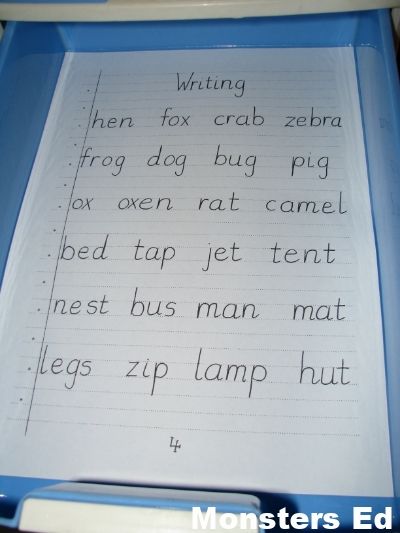 Writing
hen fox crab zebra
frog dog bug pig
ox oxen rat camel
bed tap jet tent
nest bus man mat
legs zip lamp hut
4
Monsters Ed